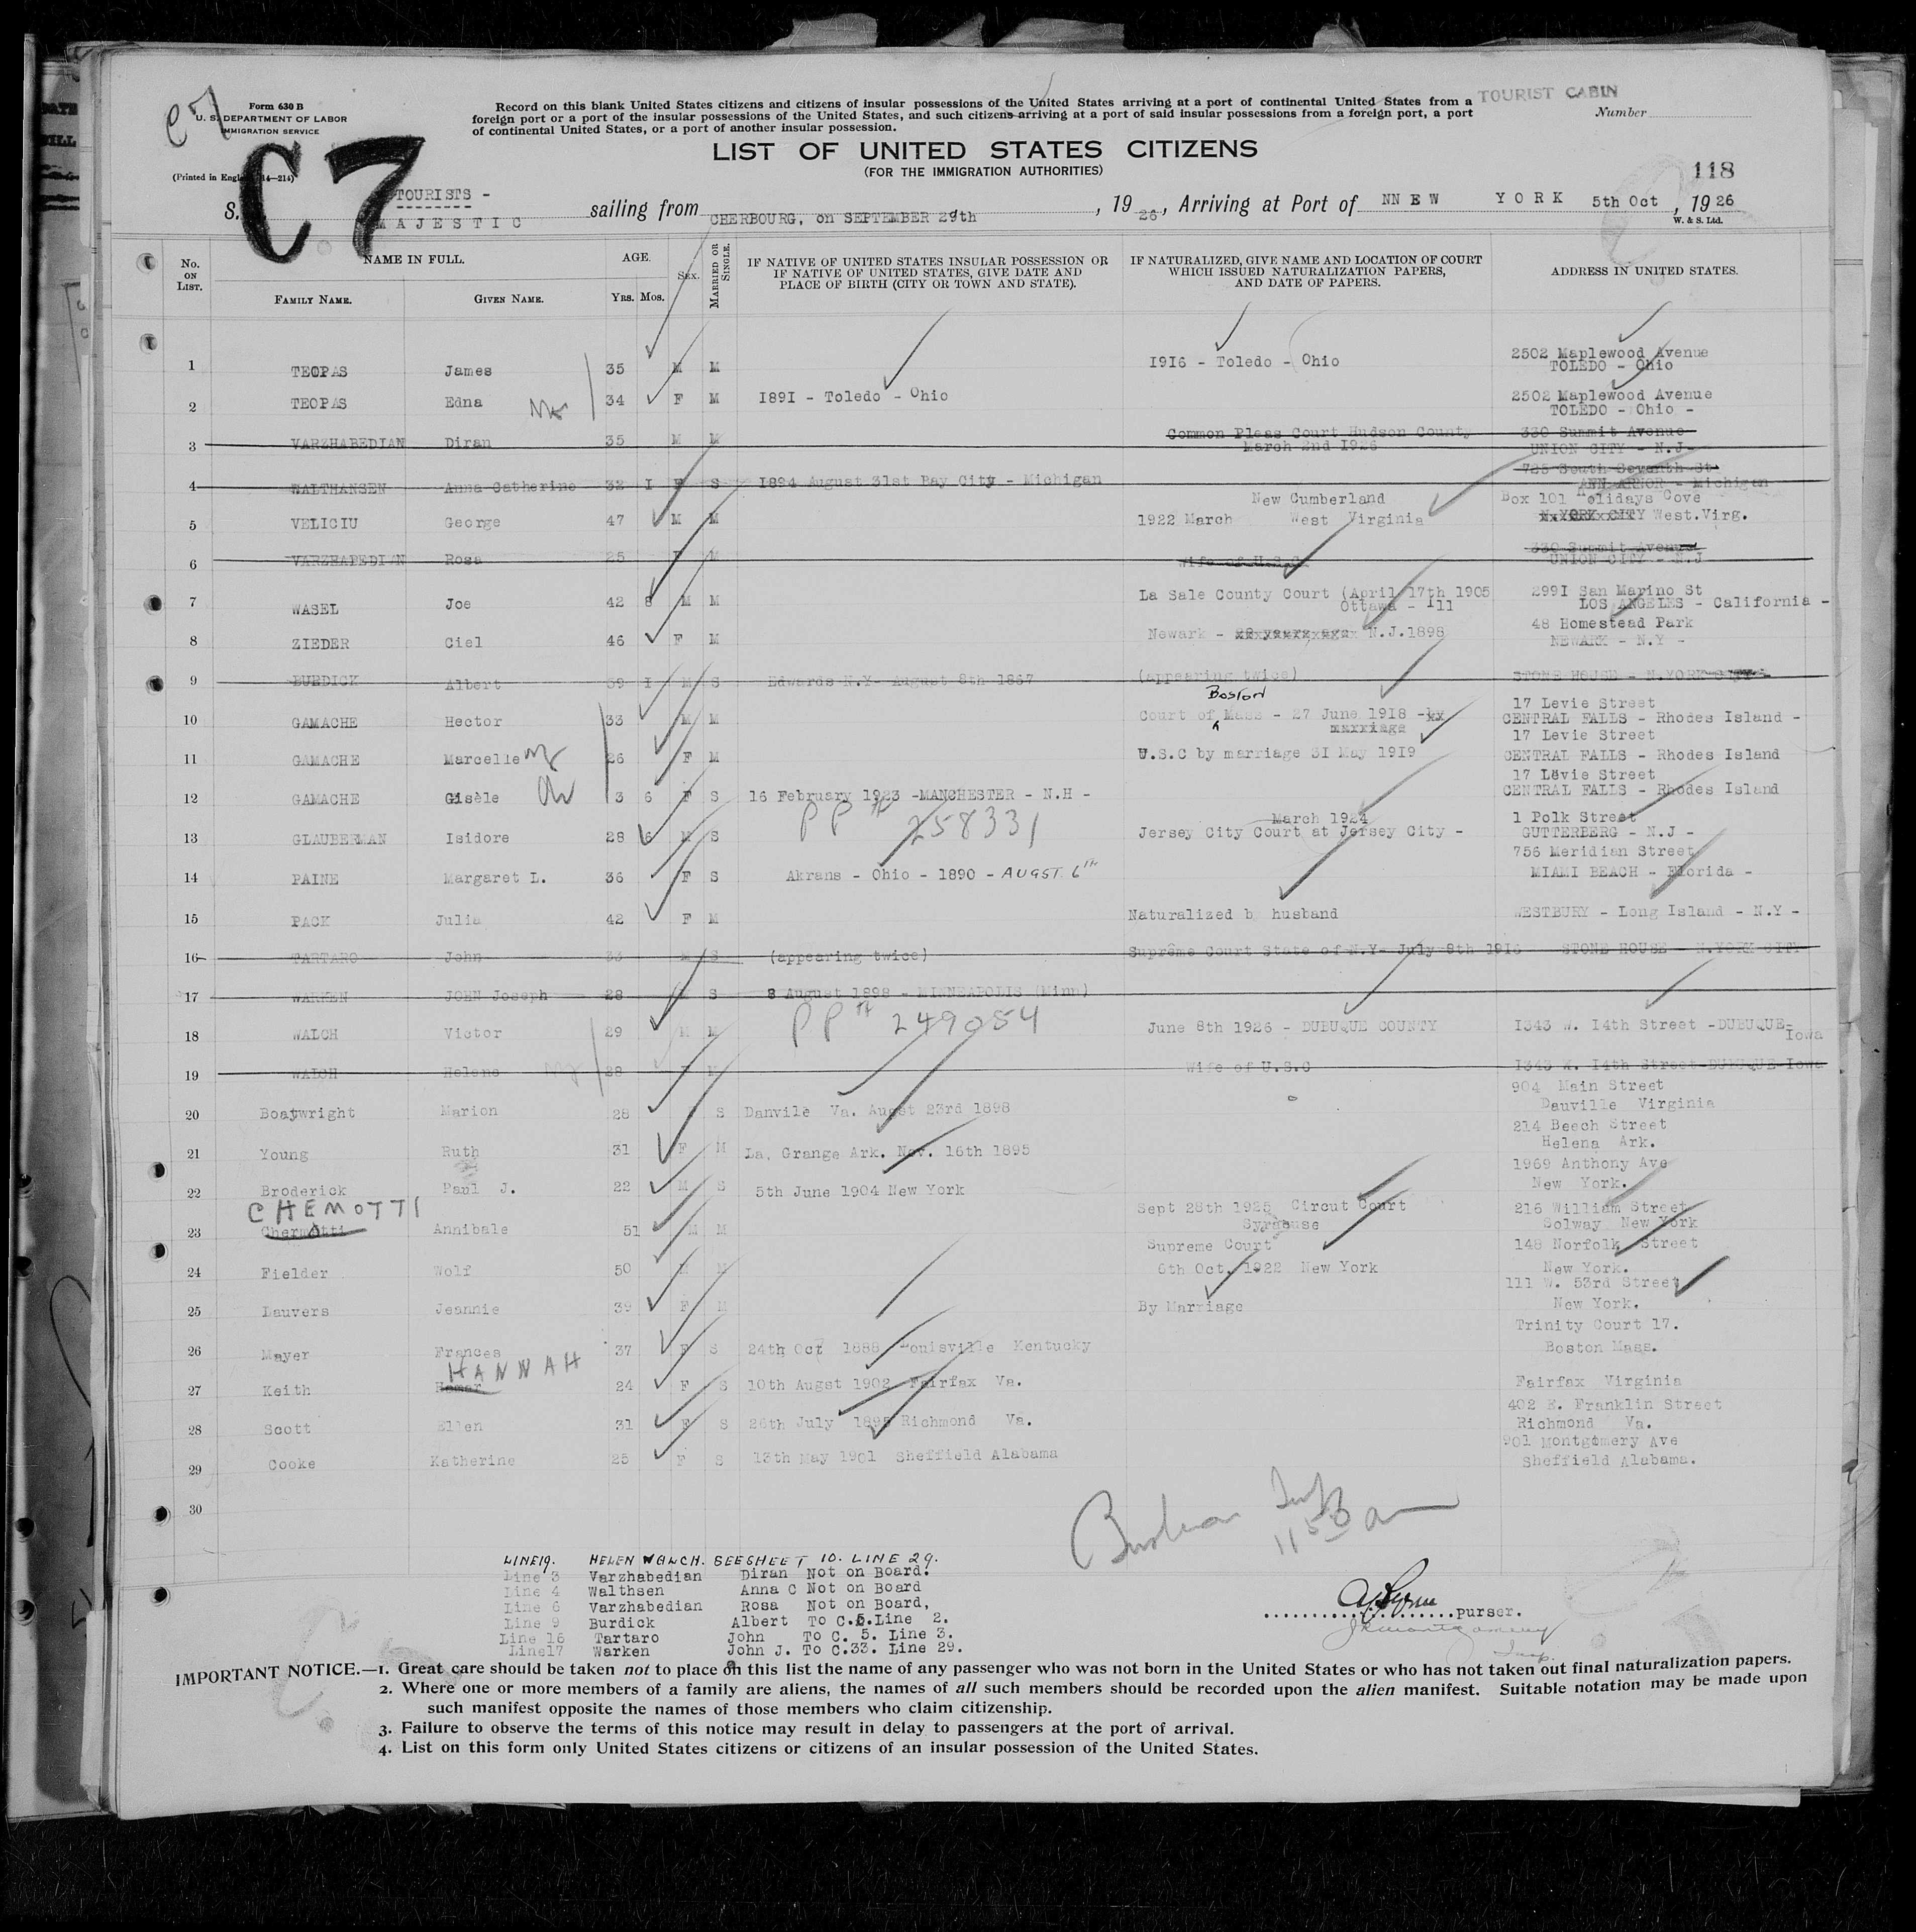 C7
Form 630 B
U. S. DEPARTMENT OF LABOR
IMMIGRATION SERVICE
Record on this blank United States citizens and citizens of insular possessions of the United States arriving at a port of continental United States from a
foreign port or a port of the insular possessions of the United States, and such citizens arriving at a port of said insular possessions from a foreign port, a port
of continental United States, or a port of another insular possession.
TOURIST CABIN
Number
LIST OF UNITED STATES CITIZENS
(FOR THE IMMIGRATION AUTHORITIES)
C7
118
TOURISTS -
S. MAJESTIC sailing from CHERBOURG, on SEPTEMBER 29th, 1926, Arriving at Port of NNEW YORK 5th Oct, 1926
W. & S. Ltd.
No. ON LIST.
NAME IN FULL.
FAMILY NAME.
GIVEN NAME.
AGE.
YRS. MOS.
SEX.
MARRIED OR SINGLE.
IF NATIVE OF UNITED STATES INSULAR POSSESSION OR
IF NATIVE OF UNITED STATES, GIVE DATE AND
PLACE OF BIRTH (CITY OR TOWN AND STATE).
IF NATURALIZED, GIVE NAME AND LOCATION OF COURT
WHICH ISSUED NATURALIZATION PAPERS,
AND DATE OF PAPERS.
ADDRESS IN UNITED STATES.
1 TEOPAS James 35 M M 1916 - Toledo - Ohio 2502 Maplewood Avenue
TOLEDO - Ohio
2 TEOPAS Edna 34 F M 1891 - Toledo - Ohio 2502 Maplewood Avenue
TOLEDO - Ohio -
3 VARZHABEDIAN Diran 35 M M Common Pleas Court Hudson County 330 Summit Avenue
March 2nd 1926 UNION CITY - N.J-
4 WALTHANSEN Anna Catherine 32 1 F S 1894 August 31st Bay City - Michigan 725 South Seventh St
ANN ARNOR - Michigan
5 VELICIU George 47 M M New Cumberland Box 101 Holidays Cove
1922 March West Virginia N.YORK CITY West.Virg.
6 VARZHAPEDIAN Rosa 25 F M Wife of U.S.C 330 Summit Avenue
UNION CITY - N.J
7 WASEL Joe 42 8 M M La Sale County Court (April 17th 1905 2991 San Marino St
Ottawa - Ill LOS ANGELES - California -
8 ZIEDER Ciel 46 F M Newark - N.J.1898 48 Homestead Park
NEWARK - N.Y -
9 BURDICK Albert 59 1 M S Edwards N.Y- August 8th 1867 (appearing twice) STONE HOUSE - N.YORK CITY -
10 GAMACHE Hector 33 M M Boston 17 Levie Street
Court of Mass - 27 June 1918 - CENTRAL FALLS - Rhodes Island -
marriage
11 GAMACHE Marcelle 26 F M U.S.C by marriage 31 May 1919 17 Levie Street
CENTRAL FALLS - Rhodes Island
12 GAMACHE Gisèle 3 6 F S 16 February 1923 -MANCHESTER - N.H - 17 Levie Street
CENTRAL FALLS - Rhodes Island
PP # 258331
13 GLAUBERMAN Isidore 28 6 M S March 1924 1 Polk Street
Jersey City Court at Jersey City - GUTTERBERG - N.J -
14 PAINE Margaret L. 36 F S Akrans - Ohio - 1890 - AUGST. 6th 756 Meridian Street
MIAMI BEACH - Florida -
15 PACK Julia 42 F M Naturalized b husband WESTBURY - Long Island - N.Y -
16 TARTARO John 33 M S (appearing twice) Suprême Court State of N.Y- July 8th 1913 STONE HOUSE - N.YORK CITY
17 WARKEN JOHN Joseph 28 M S 8 August 1898 - MINNEAPOLIS (Minn)
PP # 249054
18 WALCH Victor 29 M M June 8th 1926 - DUBUQUE COUNTY 1343 W. 14th Street -DUBUQUE-
Iowa
19 WALCH Helene 28 F M Wife of U.S.C 1343 W. 14th Street-DUBUQUE-Iowa
20 Boatwright Marion 28 S Danvile Va. Augst 23rd 1898 904 Main Street
Dauville Virginia
21 Young Ruth 31 F M La. Grange Ark. Nov. 16th 1895 214 Beech Street
Helena Ark.
22 Broderick Paul J. 22 M S 5th June 1904 New York 1969 Anthony Ave
New York.
CHEMOTTI
23 Chermotti Annibale 51 M M Sept 28th 1925 Circut Court 216 William Street
Syracuse Solway New York
24 Fielder Wolf 50 M M Supreme Court 148 Norfolk Street
6th Oct. 1922 New York New York.
25 Lauvers Jeannie 39 F M By Marriage 111 W. 53rd Street
New York.
26 Mayer Frances 37 F S 24th Oct 1888 Louisville Kentucky Trinity Court 17.
Boston Mass.
HANNAH
27 Keith 24 F S 10th Augst 1902 Fairfax Va. Fairfax Virginia
28 Scott Ellen 31 F S 26th July 1895 Richmond Va. 402 E. Franklin Street
Richmond Va.
29 Cooke Katherine 25 F S 13th May 1901 Sheffield Alabama 901 Montgomery Ave
Sheffield Alabama.
30
LINE 19. HELEN WALCH. SEE SHEET 10. LINE 29.
Line 3 Varzhabedian Diran Not on Board.
Line 4 Walthsen Anna C Not on Board
Line 6 Varzhabedian Rosa Not on Board,
Line 9 Burdick Albert To C.5.Line 2.
Line 16 Tartaro John To C. 5. Line 3.
Line17 Warken John J. To C.33. Line 29.
purser.
IMPORTANT NOTICE.—1. Great care should be taken not to place on this list the name of any passenger who was not born in the United States or who has not taken out final naturalization papers.
2. Where one or more members of a family are aliens, the names of all such members should be recorded upon the alien manifest. Suitable notation may be made upon
such manifest opposite the names of those members who claim citizenship.
3. Failure to observe the terms of this notice may result in delay to passengers at the port of arrival.
4. List on this form only United States citizens or citizens of an insular possession of the United States.